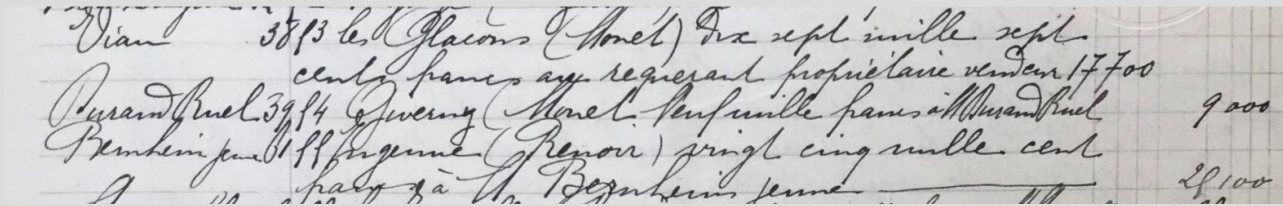 Viau 38 53 les Glaçons (Monet) dix sept mille sept
cents francs au requerant propriétaire vendeur 17700
Durand Ruel 39 54 Giverny (Monet neuf mille francs à M Durand Ruel 9000
Bernheim jeune 55 Ingenue (Renoir) vingt cinq mille cent
francs à M Bernheim jeune 25100